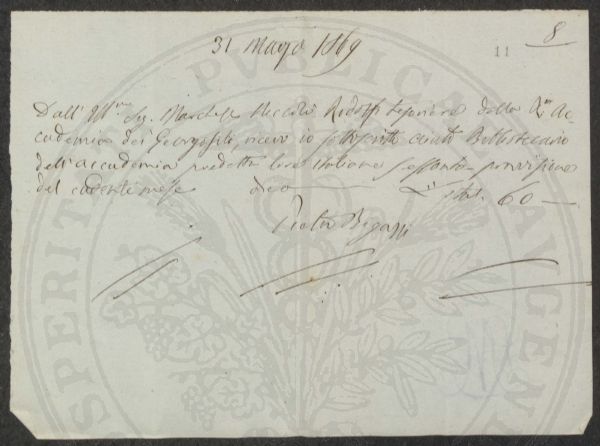 8
11
31 Maggio 1869
Dall' Ill.mo Sig. Marchese Niccolò Ridolfi Tesoriere della R. Ac-
cademia dei Georgofili, ricevo io sottoscritto Bibliotecario
dell'accademia predetta Lire Italiane sessanta provvisione
del cadente mese dico L. Ital. 60 —
Pietro Bigazzi
PROSPERITATI PUBLICAE AUGENDAE